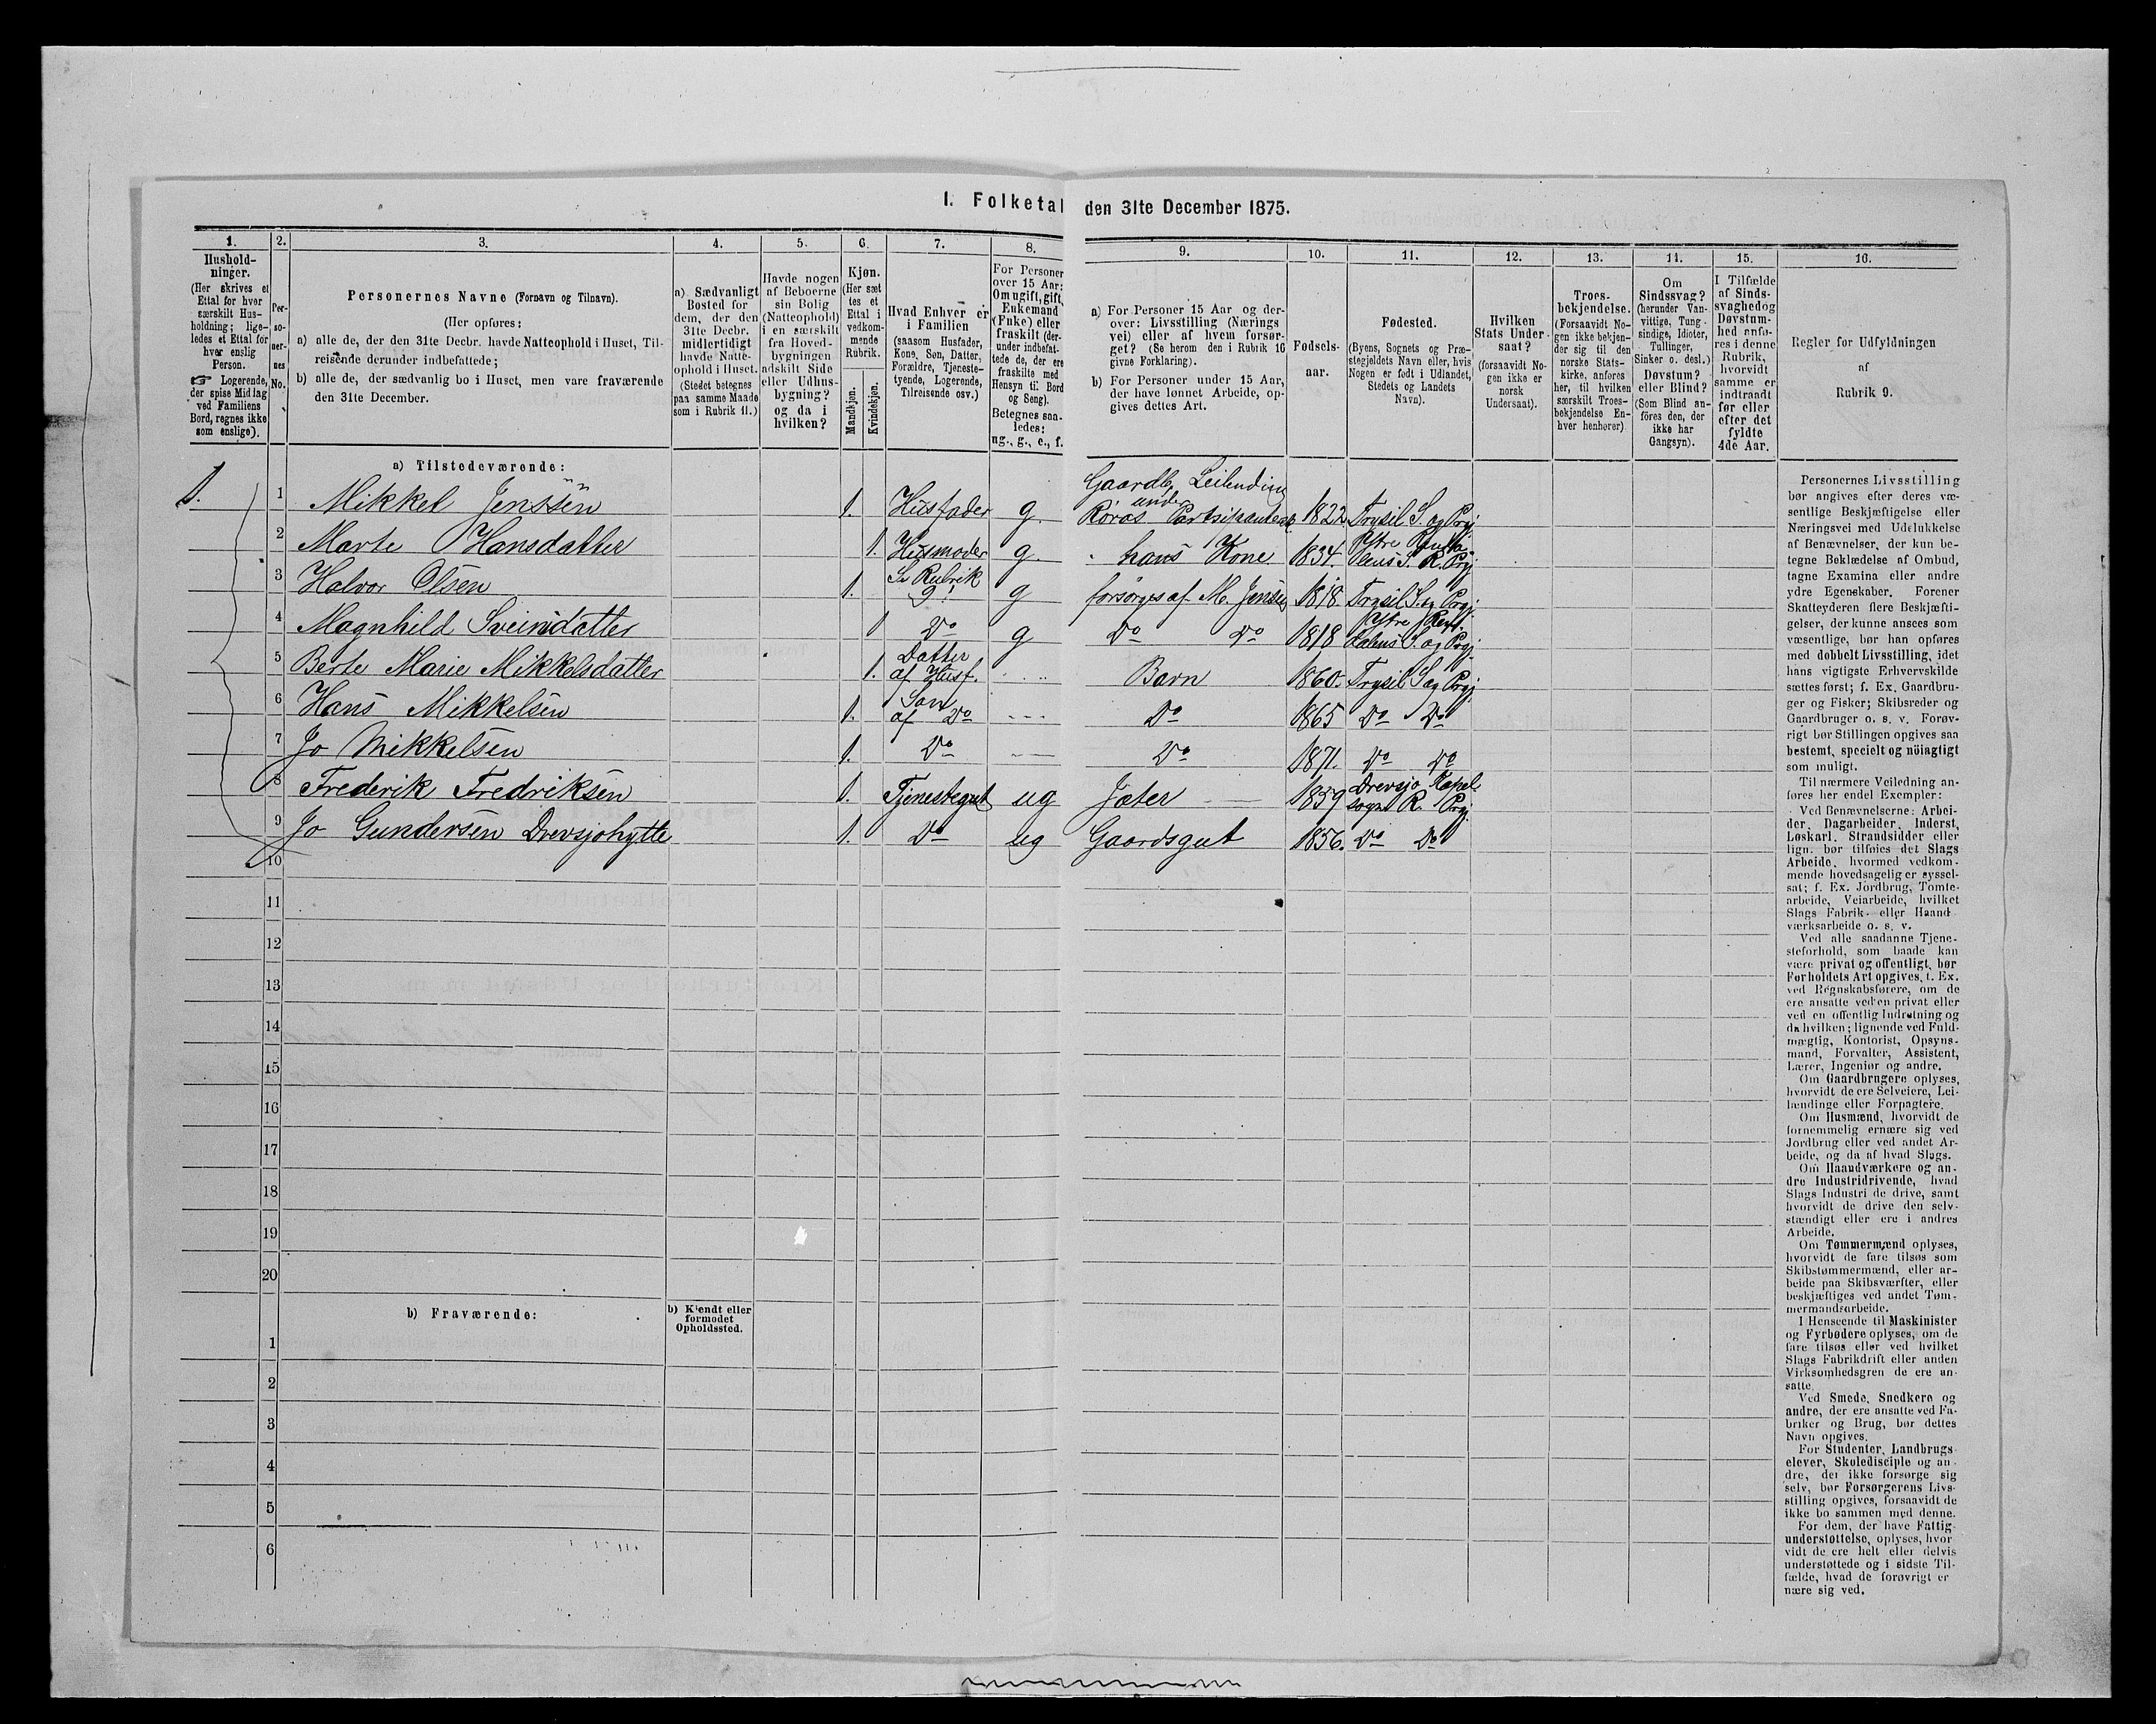 I. Folketal den 31te December 1875.
1.
2.
3.
4.
5.
6.
7.
8.
9.
10.
11.
12.
13.
14.
15.
16.
Hushold-
ninger.
(Her skrives et
Ettal for hver
særskilt Hus-
holdning; lige-
ledes et Ettal for
hver enslig
Person.
☞ Logerende,
der spise Middag
ved Familiens
Bord, regnes ikke
som enslige).
Per-
so-
ner-
nes
No.
Personernes Navne (Fornavn og Tilnavn).
(Her opføres:
a) alle de, der den 31te Decbr. havde Natteophold i Huset, Til-
reisende derunder indbefattede;
b) alle de, der sædvanlig bo i Huset, men vare fraværende
den 31te December.
a) Sædvanligt
Bosted for
dem, der den
31te Decbr.
midlertidigt
havde Natte-
ophold i Huset.
(Stedet betegnes
paa samme Maade
som i Rubrik 11.)
Havde nogen
af Beboerne
sin Bolig
(Natteophold)
i en særskilt
fra Hoved-
bygningen
adskilt Side
eller Udhus-
bygning?
og da i
hvilken?
Kjøn.
(Her sæt
tes et
Ettal i
vedkom-
mende
Rubrik.
Mandkjøn.
Kvindekjøn.
Hvad Enhver er
i Familien
(saasom Husfader,
Kone, Søn, Datter,
Forældre, Tjeneste-
tyende, Logerende,
Tilreisende osv.)
For Personer
over 15 Aar:
Om ugift, gift,
Enkemand
(Enke) eller
fraskilt (der-
under indbefat-
tede de, der ere
fraskilte med
Hensyn til Bord
og Seng).
Betegnes saa-
ledes:
ug., g., e., f.
a) For Personer 15 Aar og der-
over: Livsstilling (Nærings
vei) eller af hvem forsør-
get? (Se herom den i Rubrik 16
givne Forklaring).
b) For Personer under 15 Aar,
der have lønnet Arbeide, op-
gives dettes Art.
Fødsels-
aar.
Fødested.
(Byens, Sognets og Præ-
stegjeldets Navn eller, hvis
Nogen er født i Udlandet,
Stedets og Landets
Navn).
Hvilken
Stats Under-
saat?
(forsaavidt No-
gen ikke er
norsk
Undersaat).
Troes-
bekjendelse.
(Forsaavidt No-
gen ikke bekjen-
der sig til den
norske Stats-
kirke, anføres
her, til hvilken
særskilt Troes-
bekjendelse En-
hver henhører)
Om
Sindssvag?
(herunder Van-
vittige, Tung-
sindige, Idioter,
Tullinger,
Sinker o. desl.)
Døvstum?
eller Blind?
(Som Blind an-
føres den, der
ikke har
Gangsyn).
I Tilfælde
af Sinds-
svaghed og
Døvstum-
hed anfø-
res i denne
Rubrik,
hvorvidt
samme er
indtraadt
før eller
efter det
fyldte
4de Aar.
Regler for Udfyldningen
af
Rubrik 9.
a) Tilstedeværende:
1. 1 Mikkel Jenssen 1. Husfader g. Gaardb. Leilending under Røros 1822 Trysil S. og Prgj
2 Marte Hansdatter 1. Husmoder g. hans Kone 1834. Ytre S. R. Prgj
3 Halvor Olsen 1. Se Rubrik 9! g forsørges af M. Jensen 1818. Trysil S. og Prgj
4 Magnhild Sveinsdatter 1 Do g Do Do 1818 Ytre S. og Prgj
5 Berte Marie Mikkelsdatter 1. Datter af Husf. Barn 1860. Trysil S og Prgj
6 Hans Mikkelsen 1. Søn af Do Do 1865 Do Do
7 Jo Mikkelsen 1. Do Do 1871. Do Do
8 Frederik Fredriksen 1. Tjenestegut ug Jæter 1859 Drevsjø Kapel sogn R. Prgj.
9 Jo Gundersen Drevsjøhytte 1. Do ug Gaardsgut 1856. Do Do
10
11
12
13
14
15
16
17
18
19
20
b) Fraværende:
b) Kjendt eller
formodet
Opholdssted.
1
2
3
4
5
6
Personernes Livsstilling
bør angives efter deres væ-
sentlige Beskjæftigelse eller
Næringsvei med Udelukkelse
af Benævnelser, der kun be-
tegne Beklædelse af Ombud,
tagne Examina eller andre
ydre Egenskaber. Forener
Skatteyderen flere Beskjæfti-
gelser, der kunne ansees som
væsentlige, bør han opføres
med dobbelt Livsstilling, idet
hans vigtigste Erhvervskilde
sættes først; f. Ex. Gaardbru-
ger og Fisker; Skibsreder og
Gaardbruger o. s. v. Forøv-
rigt bør Stillingen opgives saa
bestemt, specielt og nöiagtigt
som muligt.
Til nærmere Veiledning an-
føres her endel Exempler:
Ved Benævnelserne: Arbei-
der, Dagarbeider, Inderst,
Løskarl, Strandsidder eller
lign. bør tilføies det Slags
Arbeide, hvormed vedkom-
mende hovedsagelig er syssel-
sat; f. Ex. Jordbrug, Tomte-
arbeide, Veiarbeide, hvilket
Slags Fabrik- eller Haand-
værksarbeide o. s. v.
Ved alle saadanne Tjene-
steforhold, som baade kan
være privat og offentligt, bør
Forholdets Art opgives, f. Ex.
ved Regnskabsførere, om de
ere ansatte ved en privat eller
ved en offentlig Indretning og
da hvilken; lignende ved Fuld-
mægtig, Kontorist, Opsyns-
mand, Forvalter, Assistent,
Lærer, Ingeniør og andre.
Om Gaardbrugere oplyses,
hvorvidt de ere Selveiere, Lei-
lændinge eller Forpagtere.
Om Husmænd, hvorvidt de
fornemmelig ernære sig ved
Jordbrug eller ved andet Ar-
beide, og da af hvad Slags.
Om Haandværkere og an-
dre Industridrivende, hvad
Slags Industri de drive, samt
hvorvidt de drive den selv-
stændigt eller ere i andres
Arbeide.
Om Tømmermænd oplyses,
hvorvidt de fare tilsøs som
Skibstømmermænd, eller ar-
beide paa Skibsværfter, eller
beskjæftiges ved andet Tøm-
mermandsarbeide.
I Henseende til Maskinister
og Fyrbødere oplyses, om de
fare tilsøs eller ved hvilket
Slags Fabrikdrift eller anden
Virksomhedsgren de ere an-
satte.
Ved Smede, Snedkere og
andre, der ere ansatte ved Fa-
briker og Brug, bør dettes
Navn opgives.
For Studenter, Landbrugs-
elever, Skoledisciple og an-
dre, der ikke forsørge sig
selv, bør Forsørgerens Livs-
stilling opgives, forsaavidt de
ikke bo sammen med denne.
For dem, der have Fattig-
understøttelse, oplyses, hvor-
vidt de ere helt eller delvis
understøttede og i sidste Til-
fælde, hvad de forøvrigt er-
nære sig ved.